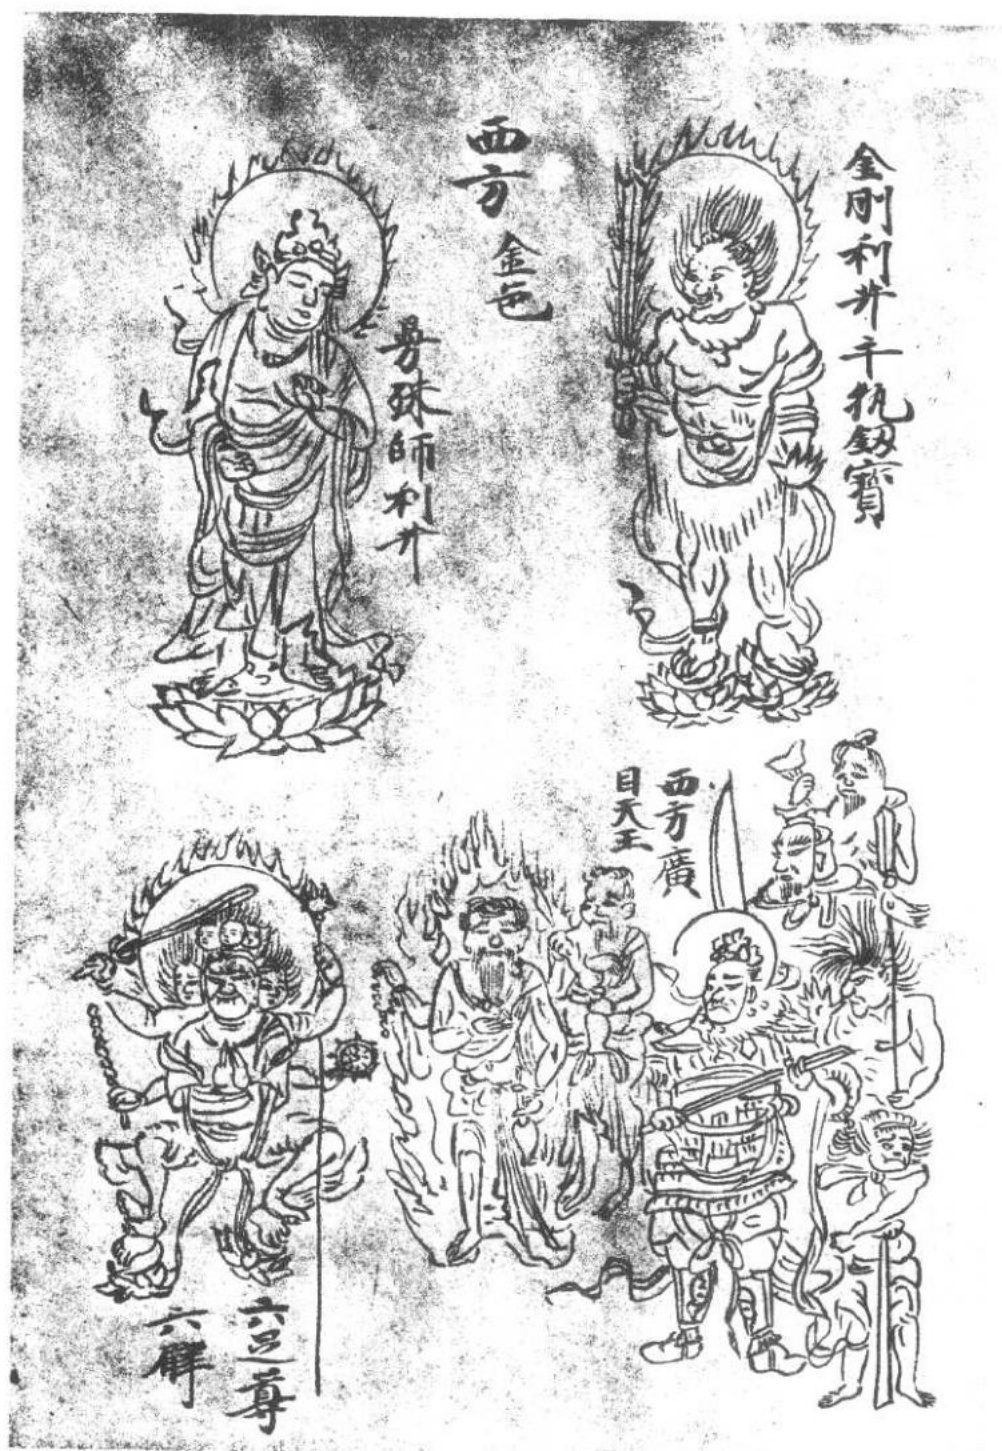 金剛利𦬇千執釼寶
西方
金色
曼殊師利𦬇
西方廣
目天王
六足尊
六臂